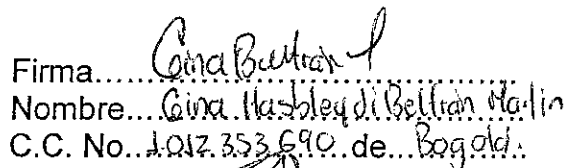 Firma..... Gina Beltran
Nombre.... Gina Hasbleydi Beltran Martin
C.C. No..1.012.353.690..de...Bogotá.